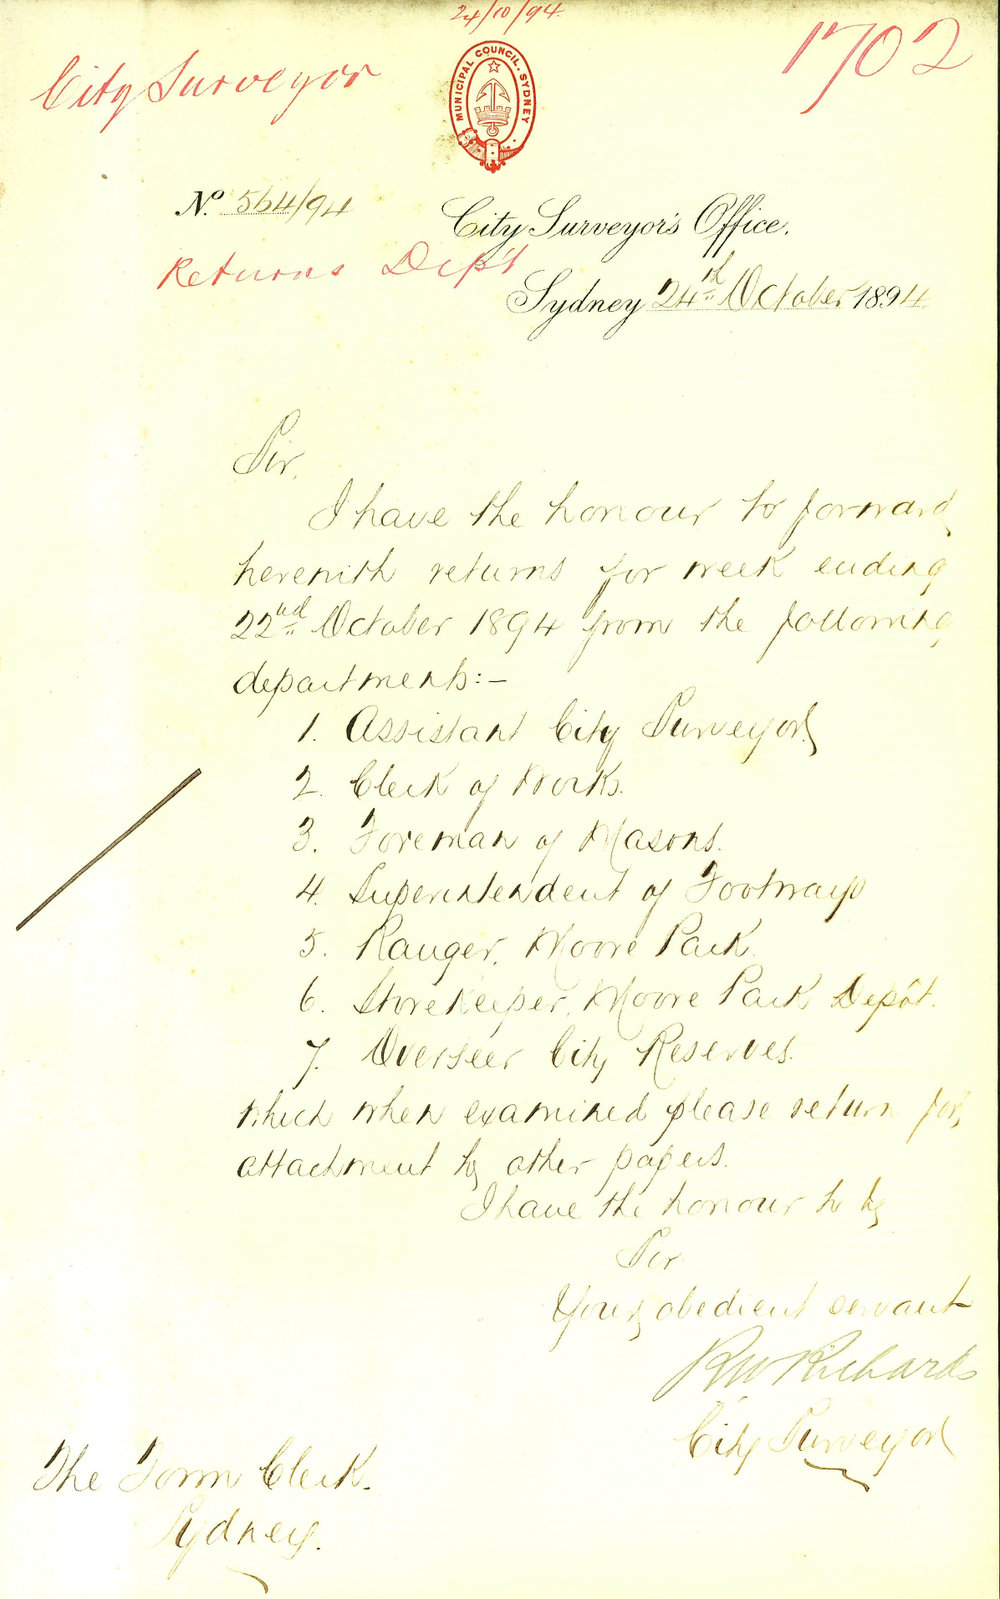 24/10/94.
City Surveyor
1702
MUNICIPAL COUNCIL, SYDNEY
No. 564/94
City Surveyor's Office.
Returns Dep't
Sydney 24th October 1894
Sir,
I have the honour to forward
herewith returns for week ending
22nd October 1894 from the following
departments:-
1. Assistant City Surveyor
2. Clerk of Works.
3. Foreman of Masons.
4. Superintendent of Footways
5. Ranger, Moore Park.
6. Storekeeper, Moore Park Depôt.
7. Overseer City Reserves.
which when examined please return for
attachment to other papers.
I have the honour to be
Sir
Your obedient servant
RW Richards
City Surveyor
The Town Clerk.
Sydney.